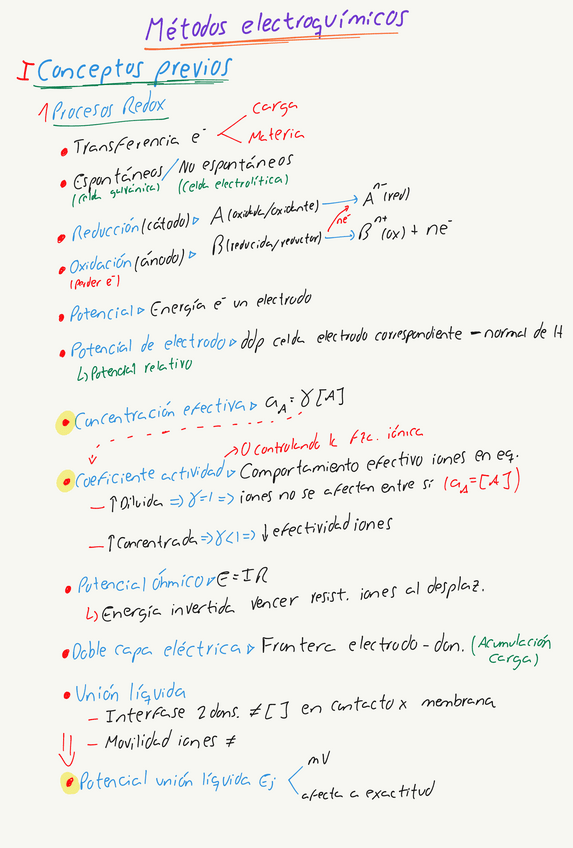 Métodos electroquímicos
I Conceptos previos
1 Procesos Redox
• Transferencia e⁻ < Carga
Materia
• Espontáneos / No espontáneos
(Celda galvánica) (Celda electrolítica)
• Reducción (cátodo) ▹ A (oxidada/oxidante) → Aⁿ⁻ (red)
ne⁻
• Oxidación (ánodo) ▹ B (reducida/reductor) → Bⁿ⁺ (ox) + ne⁻
(perder e⁻)
• Potencial ▹ Energía e⁻ un electrodo
• Potencial de electrodo ▹ ddp celda electrodo correspondiente – normal de H
↳ Potencial relativo
• Concentración efectiva ▹ a_A = γ [A]
→ O controlando la Fzc. iónica
• Coeficiente actividad ▹ Comportamiento efectivo iones en eq.
– ↑ Diluida ⇒ γ=1 ⇒ iones no se afectan entre sí (a_A = [A])
– ↑ Concentrada ⇒ γ<1 ⇒ ↓ efectividad iones
• Potencial óhmico ▹ E = IR
↳ Energía invertida vencer resist. iones al desplaz.
• Doble capa eléctrica ▹ Frontera electrodo – don. (Acumulación
carga)
• Unión líquida
– Interfase 2 dons. ≠ [ ] en contacto x membrana
– Movilidad iones ≠
⇓
• Potencial unión líquida Ej < mV
afecta a exactitud